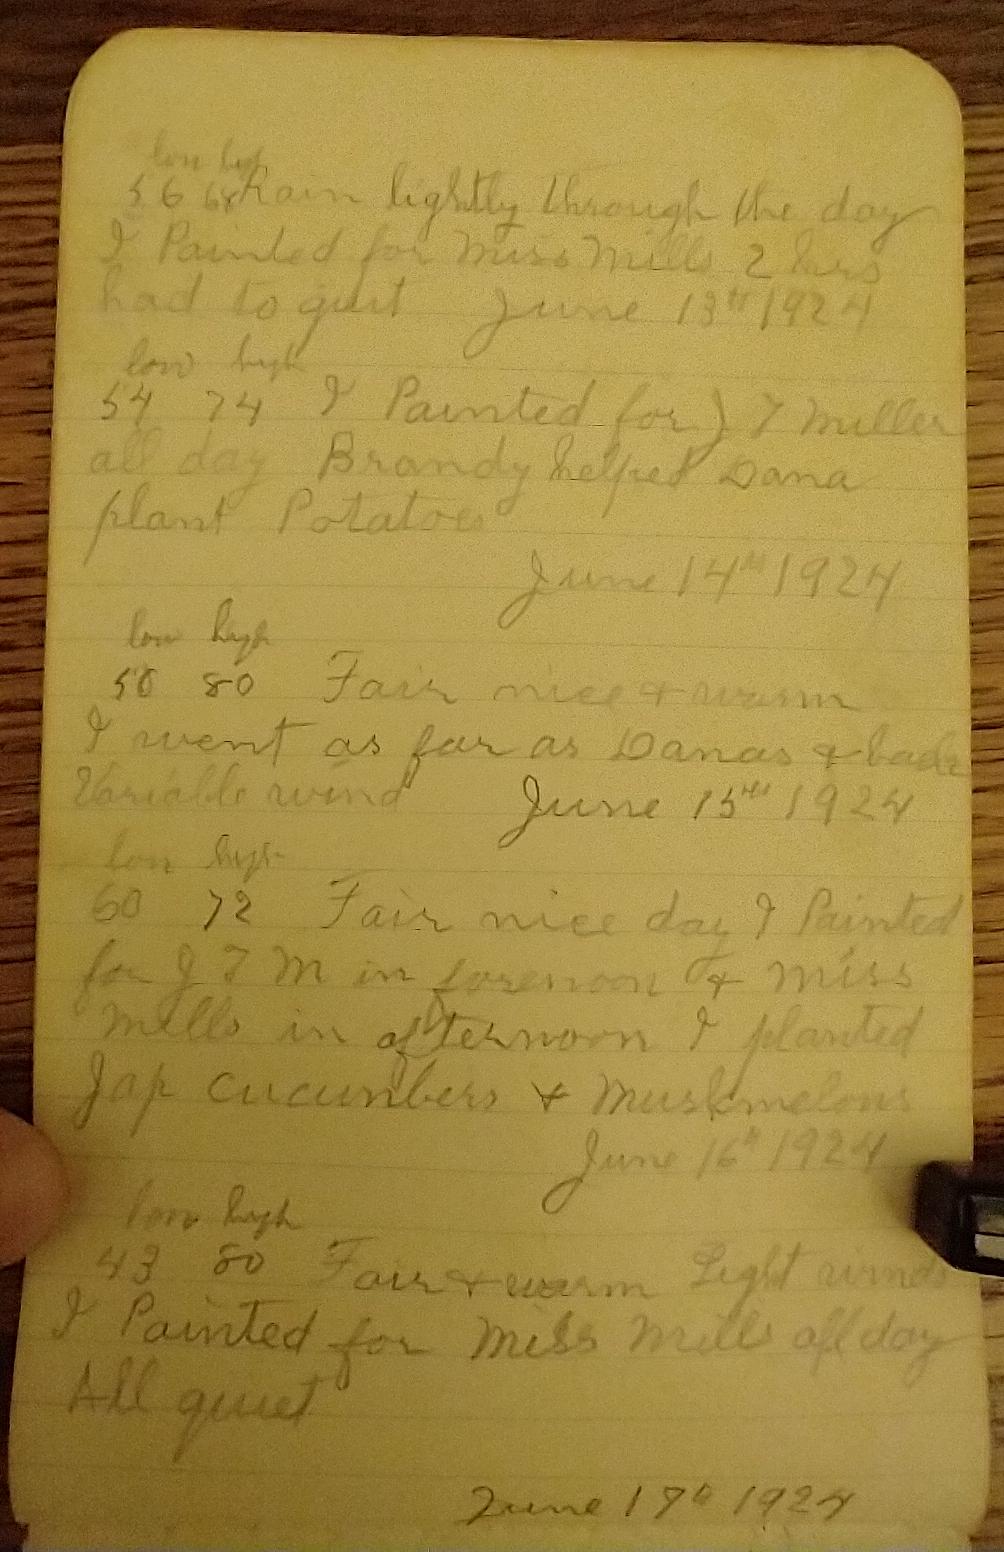 low high
56 68 Rain lightly through the day
I Painted for Miss Mills 2 hrs
had to quit June 13th 1924
low high
54 74 I Painted for J T Miller
all day Brandy helped Dana
plant Potatoes
June 14th 1924
low high
50 80 Fair nice & warm
I went as far as Danas & back
Variable wind June 15th 1924
low high
60 72 Fair nice day I Painted
for J T M in forenoon & Miss
Mills in afternoon I planted
Jap cucumbers & Muskmelons
June 16th 1924
low high
43 80 Fair & warm Light winds
I Painted for Miss Mills all day
All quiet
June 17th 1924